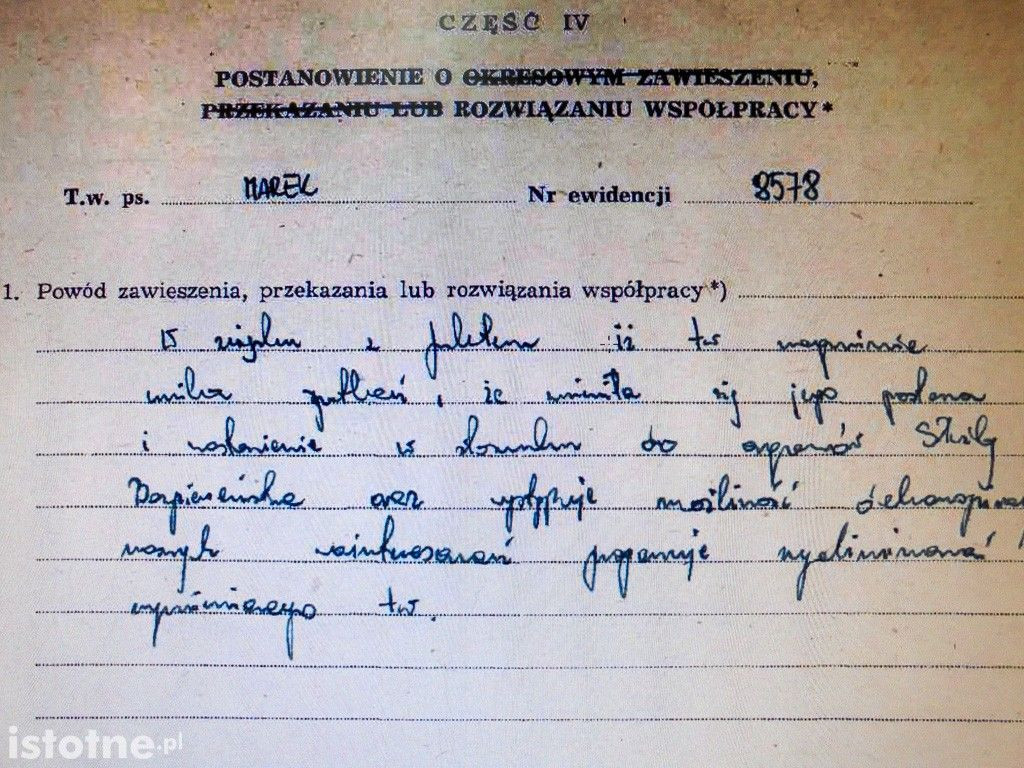 CZĘŚĆ IV
POSTANOWIENIE O OKRESOWYM ZAWIESZENIU,
PRZEKAZANIU LUB ROZWIĄZANIU WSPÓŁPRACY*
T.w. ps. MAREK Nr ewidencji 8578
1. Powód zawieszenia, przekazania lub rozwiązania współpracy*)
W związku z faktem iż tw
unika spotkań, że zmieniła się jego postawa
i nastawienie w stosunku do organów Służby
Bezpieczeństwa oraz występuje możliwość dekonspiracji
naszych zainteresowań wyeliminować
tw.
istotne.pl